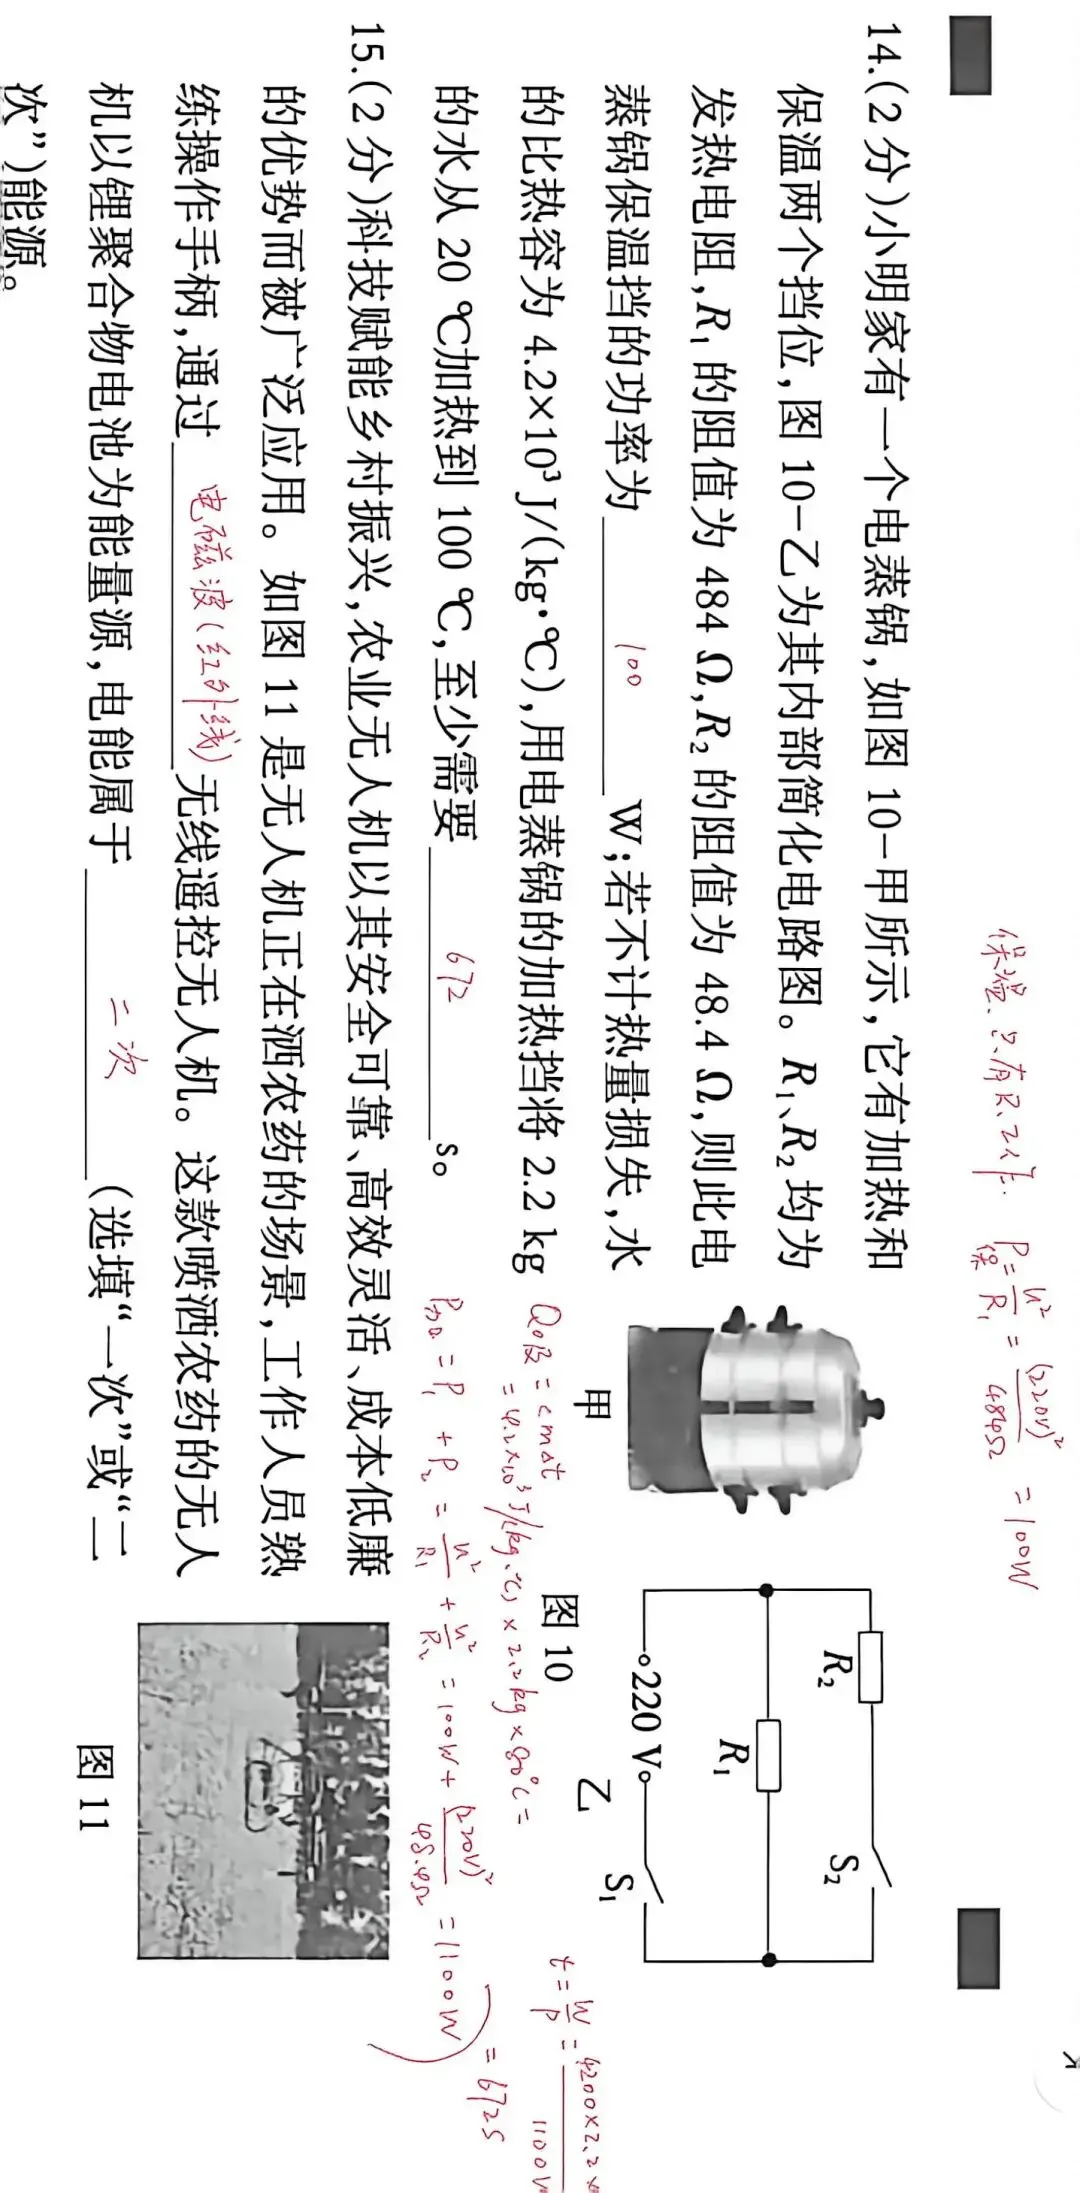 14.(2 分)小明家有一个电蒸锅,如图 10-甲所示,它有加热和
保温两个挡位,图 10-乙为其内部简化电路图。R₁、R₂ 均为
发热电阻,R₁ 的阻值为 484 Ω,R₂ 的阻值为 48.4 Ω,则此电
蒸锅保温挡的功率为 100 W;若不计热量损失,水
的比热容为 4.2×10³ J/(kg·℃),用电蒸锅的加热挡将 2.2 kg
的水从 20 ℃加热到 100 ℃,至少需要 672 s。
保温:只有R₁工作.
P保=U²/R₁=(220V)²/484Ω=100W
甲
R₂
R₁
S₂
220 V
S₁
乙
图 10
Q吸=cmΔt
=4.2×10³J/(kg·℃)×2.2kg×80℃=
P加=P₁+P₂=U²/R₁+U²/R₂=100W+(220V)²/48.4Ω=1100W
t=W/P=4200×2.2×
1100W
=672s
15.(2 分)科技赋能乡村振兴,农业无人机以其安全可靠、高效灵活、成本低廉
的优势而被广泛应用。如图 11 是无人机正在洒农药的场景,工作人员熟
练操作手柄,通过 电磁波(红外线) 无线遥控无人机。这款喷洒农药的无人
机以锂聚合物电池为能量源,电能属于 二次 (选填“一次”或“二
次”)能源。
图 11